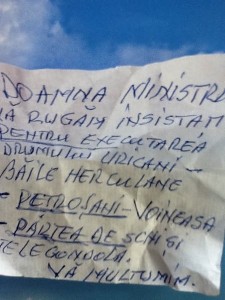 DOAMNA MINISTRU
VĂ RUGĂM INSISTAM
PENTRU EXECUTAREA
DRUMULUI URICANI -
BĂILE HERCULANE
- PETROȘANI - VOINEASA
- PÂRTEA DE SCHI ȘI
TELEGONDOLA.
VĂ MULTUMIM.